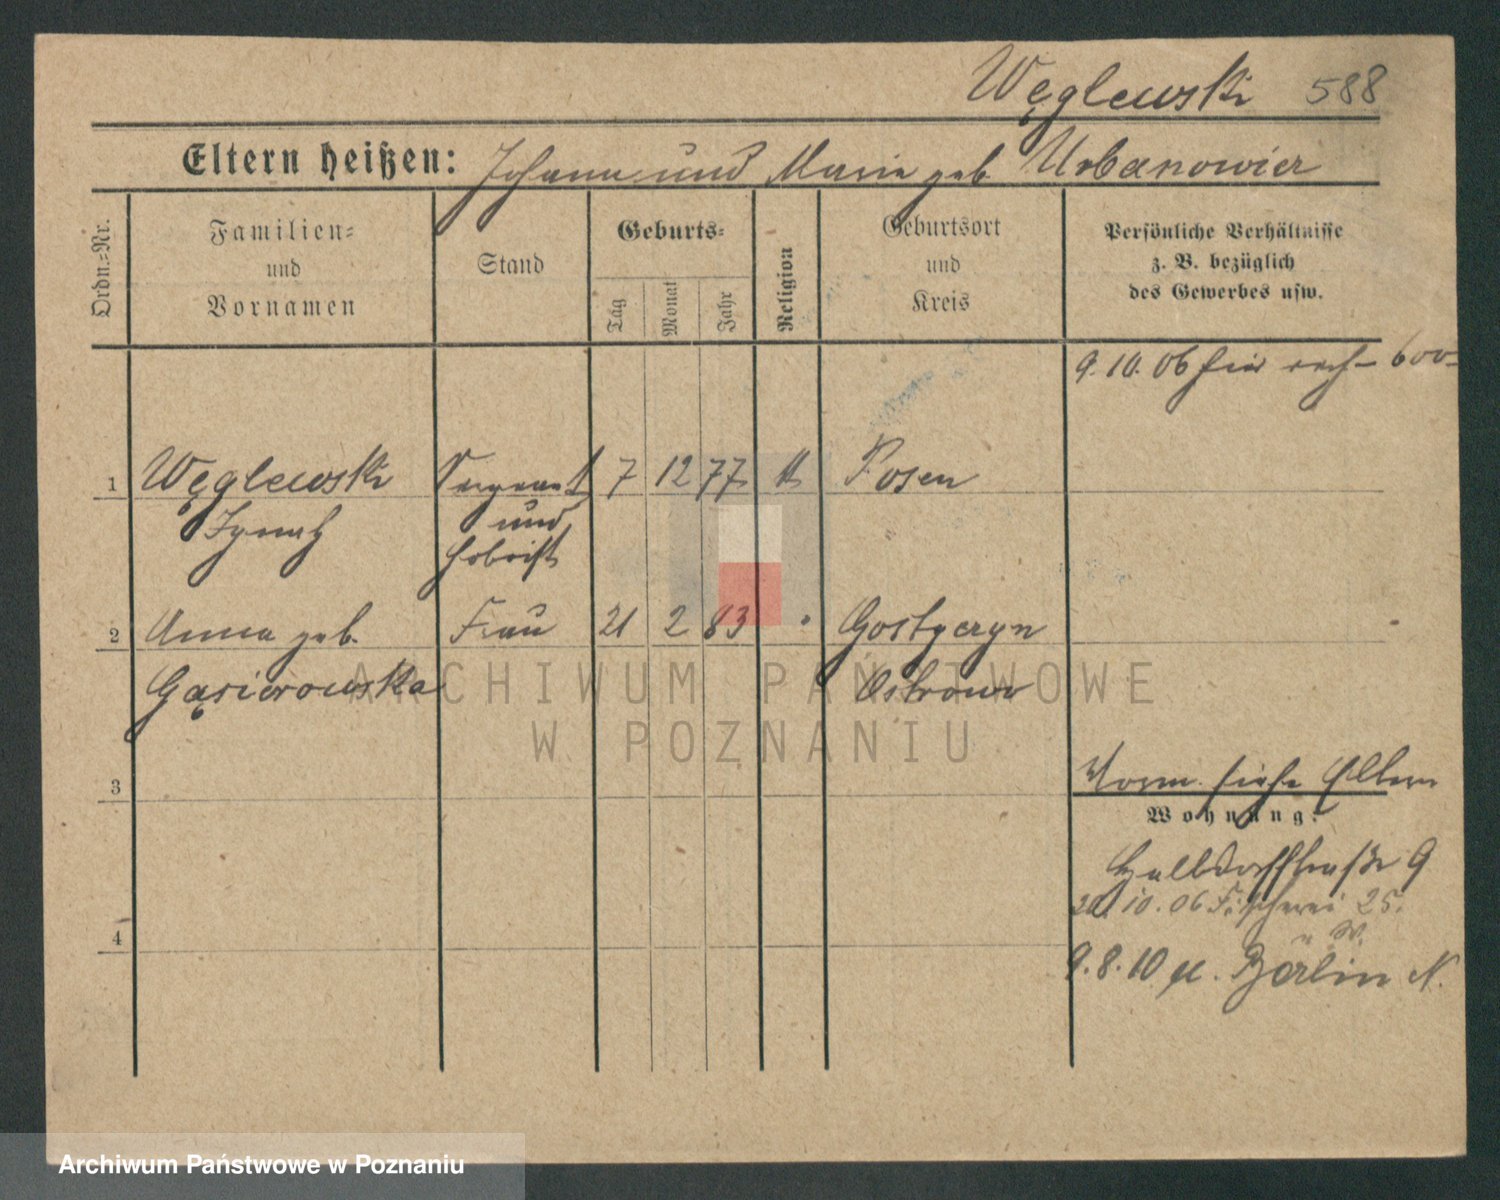 Węglewski 588
Eltern heißen: Johann und Marie geb. Urbanowicz
Ordn.-Nr.
Familien-
und
Vornamen
Stand
Geburts-
Tag
Monat
Jahr
Religion
Geburtsort
und
Kreis
Persönliche Verhältnisse
z. B. bezüglich
des Gewerbes usw.
9.10.06
1 Węglewski Sergeant 7 12 77 k Posen
Ignatz und
Hoboist
2 Anna geb. Frau 21 2 83 " Gostyczyn
Gąsiorowska Ostrowo
3
Vorm. siehe Eltern
Wohnung:
Halbdorfstraße 9
20.10.06 Fischerei 25.
4
9.8.10 Berlin N.
ARCHIWUM PAŃSTWOWE
W POZNANIU
Archiwum Państwowe w Poznaniu